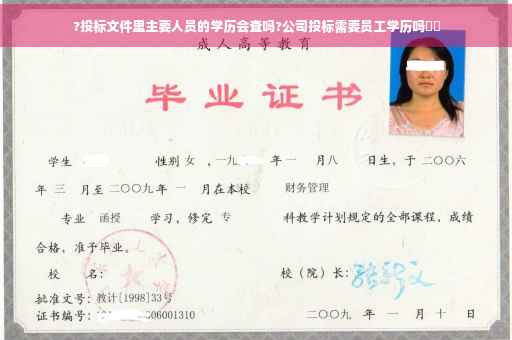 ?投标文件里主要人员的学历会查吗?公司投标需要员工学历吗
成人高等教育
毕业证书
学生 性别 女 ，一九 年 一 月八 日生，于 二〇〇六
年 三 月至二〇〇九年 一 月在本校 财务管理
专业 函授 学习，修完 专 科教学计划规定的全部课程，成绩
合格，准予毕业。
校 名： 校（院）长：
批准文号：教计[1998]33号
证书编号： 06001310 二〇〇九 年 一 月 十 日